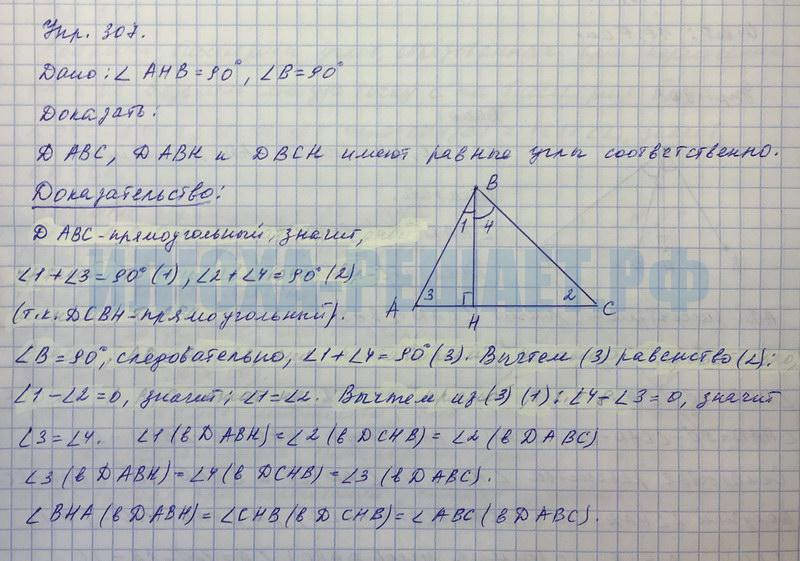 Упр. 307.
Дано: ∠ AHB = 90°, ∠B = 90°
Доказать:
D ABC, D ABH и DBCH имеют равные углы соответственно.
Доказательство:
D ABC - прямоугольный, значит,
∠1 + ∠3 = 90° (1), ∠2 + ∠4 = 90° (2)
(т.к. DCBH - прямоугольный).
B
1
4
3
2
A
H
C
ИЛЮХА-РЕШАЕТ.РФ
∠B = 90°, следовательно, ∠1 + ∠4 = 90° (3). Вычтем (3) равенство (2):
∠1 - ∠2 = 0, значит; ∠1 = ∠2. Вычтем из (3) (1): ∠4 - ∠3 = 0, значит
∠3 = ∠4. ∠1 (в D ABH) = ∠2 (в DCHB) = ∠2 (в D ABC)
∠3 (в D ABH) = ∠4 (в DCHB) = ∠3 (в DABC).
∠BHA (в DABH) = ∠CHB (в D CHB) = ∠ABC (в DABC).